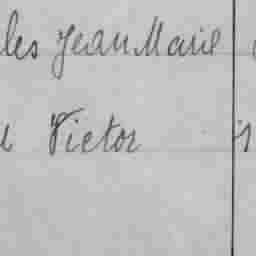 les Jean Marie
Victor